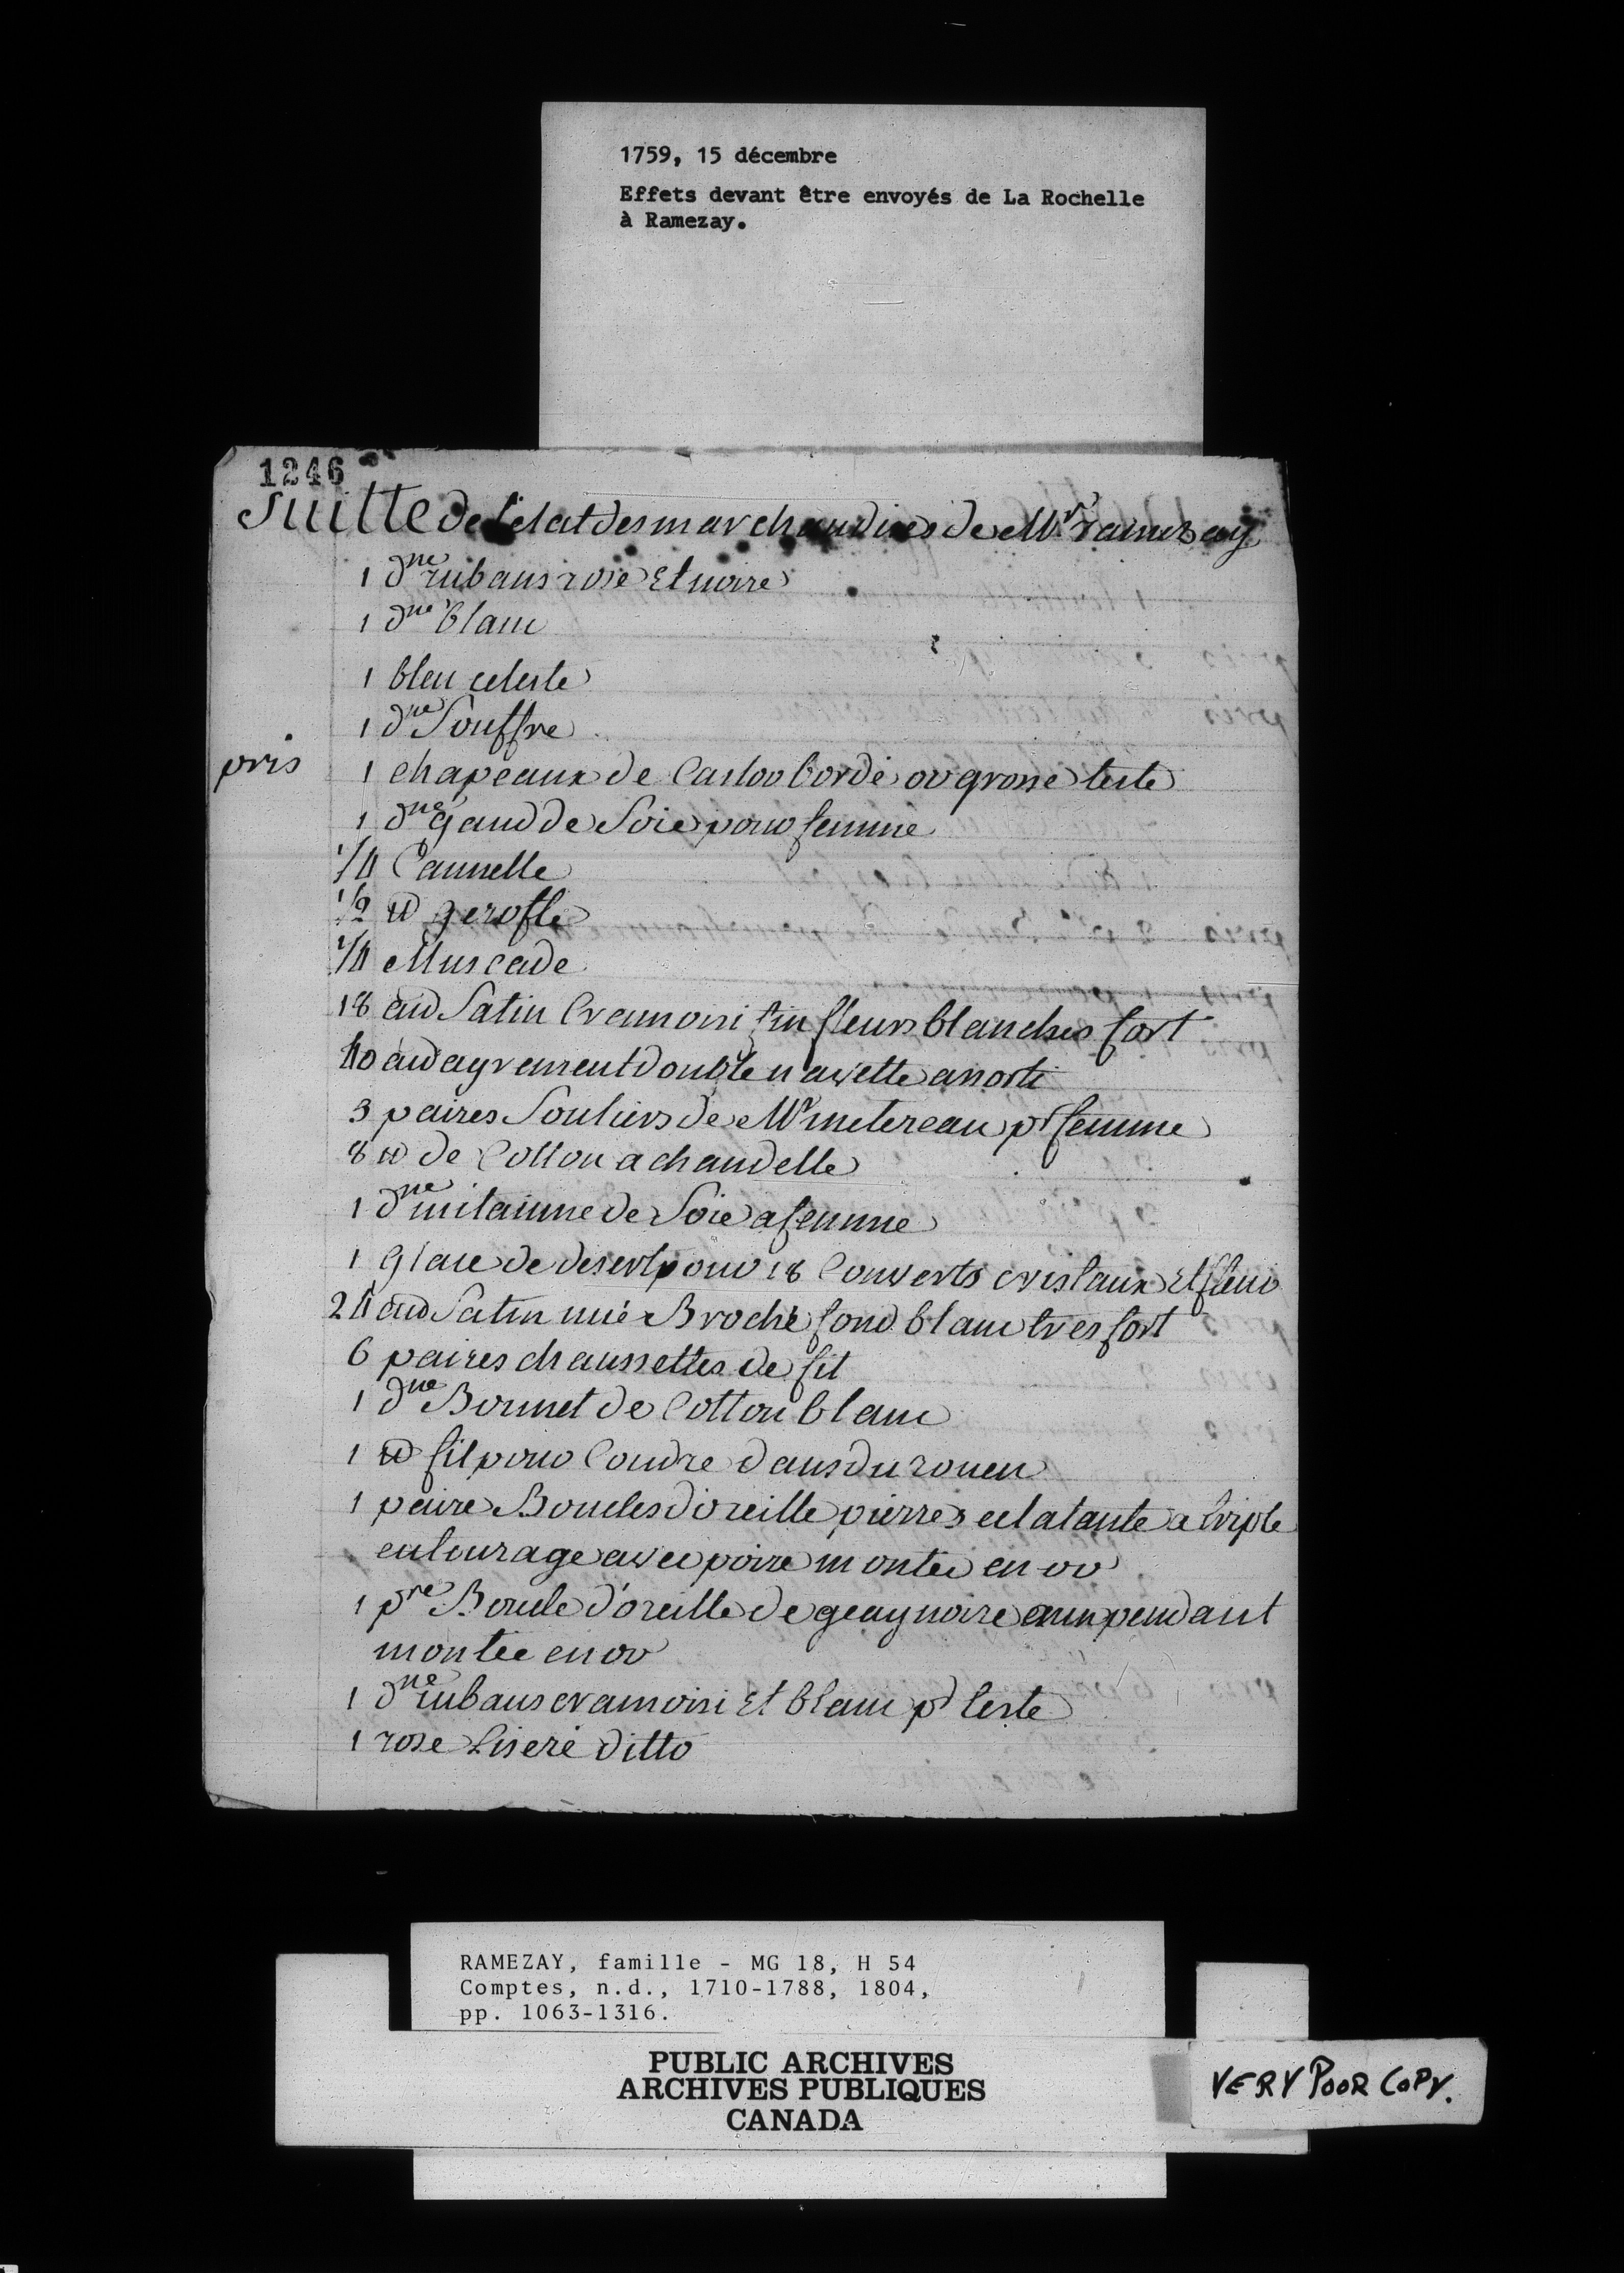 1759, 15 décembre
Effets devant être envoyés de La Rochelle
à Ramezay.
1246
Suitte de l'etat des marchandises de Mr ramezay
1 dne rubans rose Et noire
1 dne blanc
1 bleu celeste
1 dne Souffre
pris 1 chapeaux de Castor bordé or grosse teste
1 dne gand de Soie pour femme
1/4 Cannelle
1/2 ℔ gerofle
1/4 Muscade
18 au Satin Cramoisi fin fleurs blanches fort
40 au agrement double navette assorti
3 paires Souliers de Mr metereau pr femme
8 ℔ de Cotton a chandelle
1 dne mitainne de Soie a femme
1 Glace de desert pour 18 Couverts cristaux Et fleur
24 au Satin nué Broché fond blanc tres fort
6 paires chaussettes de fil
1 dne Bonnet de Cotton blanc
1 ℔ fil pour Coudre dans du rouen
1 paire Boucles d'oreille pierres eclatante a triple
entourage avec poire montée en or
1 pre Boucle d'oreille de geay noire a un pendant
montée en or
1 dne rubans cramoisi Et blanc pr teste
1 rose Liseré ditto
RAMEZAY, famille - MG 18, H 54
Comptes, n.d., 1710-1788, 1804,
pp. 1063-1316.
PUBLIC ARCHIVES
ARCHIVES PUBLIQUES
CANADA
VERY POOR COPY.